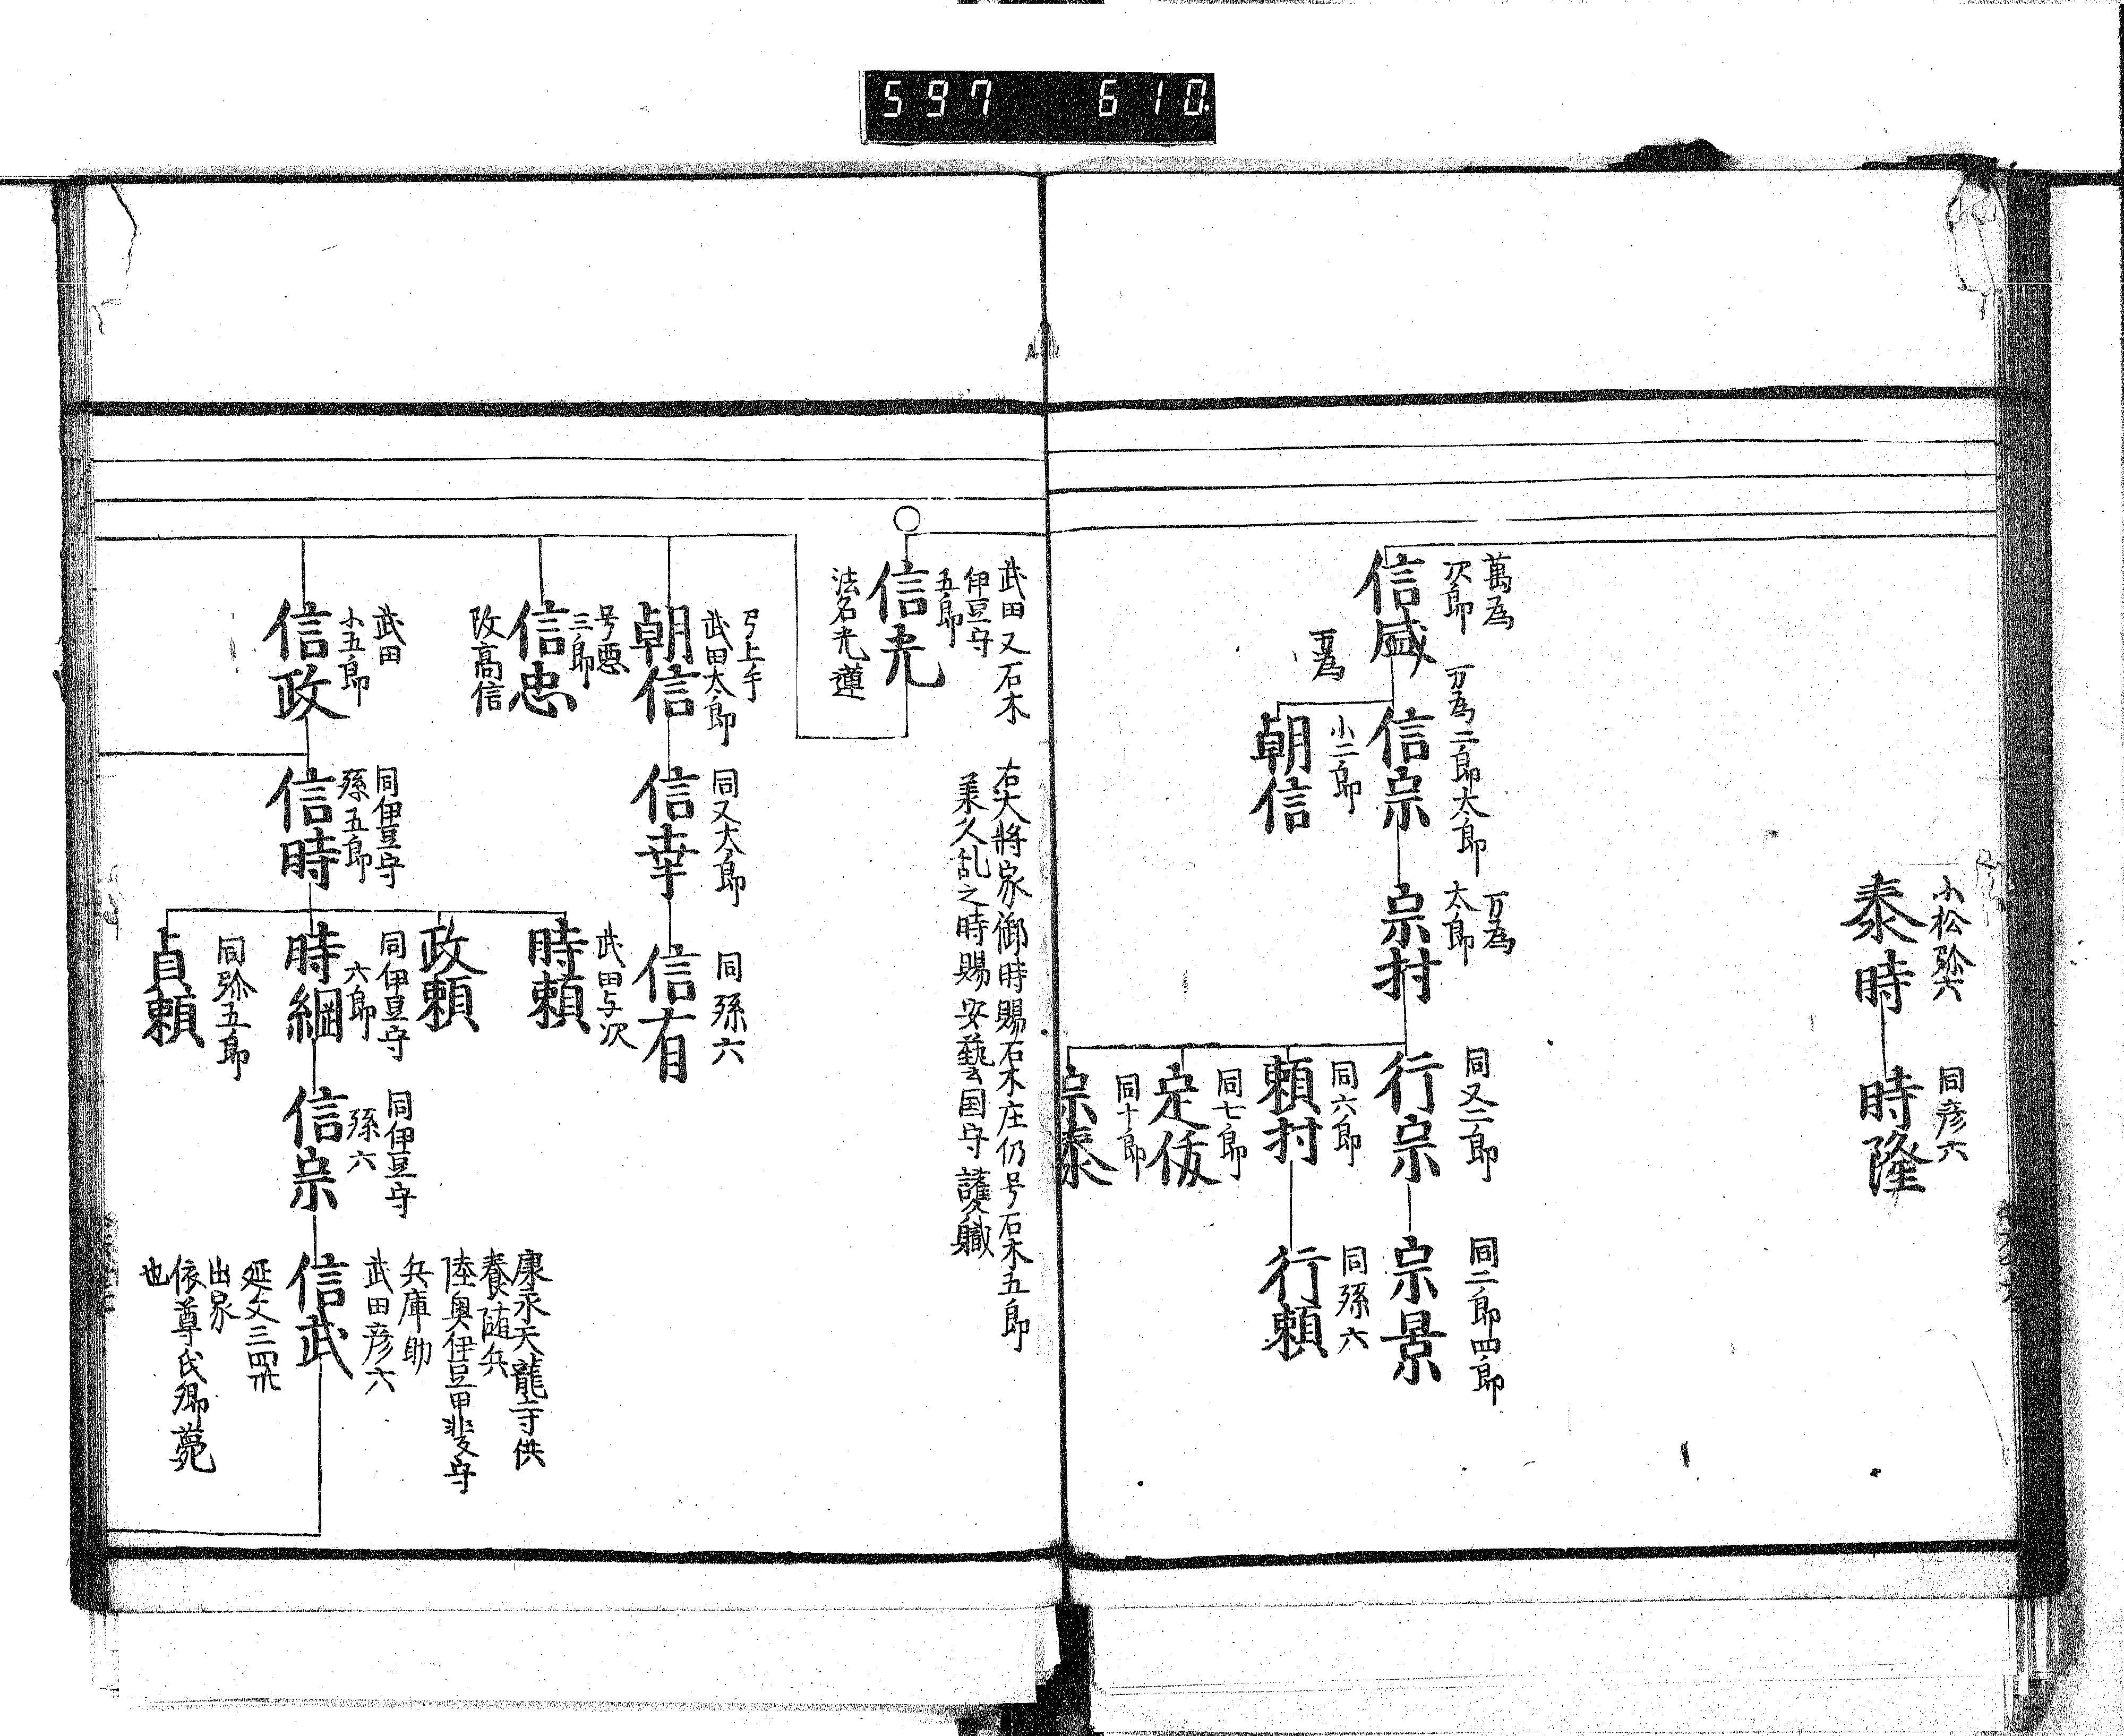 597 610
小松弥六
泰時
同彦六
時隆
萬為
次郎
信盛
万為二郎太郎
信宗
万為
小二郎
朝信
万為
太郎
宗村
同又二郎
行宗
同二郎四郎
宗景
同六郎
頼村
同孫六
行頼
同七郎
同十郎
宗泰
武田又石木
伊豆守
五郎
信光
法名光蓮
右大将家御時賜石木庄仍号石木五郎
承久乱之時賜安藝国守護職
弓上手
武田太郎
朝信
同又太郎
信幸
同孫六
信有
号悪
三郎
信忠
改高信
武田
小五郎
信政
同伊豆守
孫五郎
信時
武田与次
時頼
政頼
同伊豆守
六郎
時綱
同弥五郎
貞頼
同伊豆守
孫六
信宗
康永天龍寺供
養随兵
陸奥伊豆甲斐守
兵庫助
武田彦六
信武
延文三四卅
出家
依尊氏卿薨
也